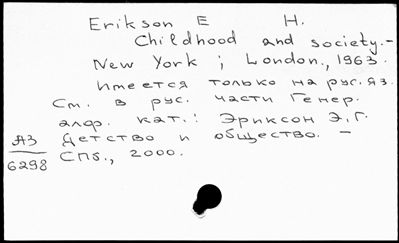 Erikson E H.
Childhood and society.-
New York ; London., 1963.
Имеется только на рус. яз.
См. в рус. части Генер.
алф. кат.: Эриксон Э.Г.
Детство и общество. -
СПб., 2000.
АЗ
6298